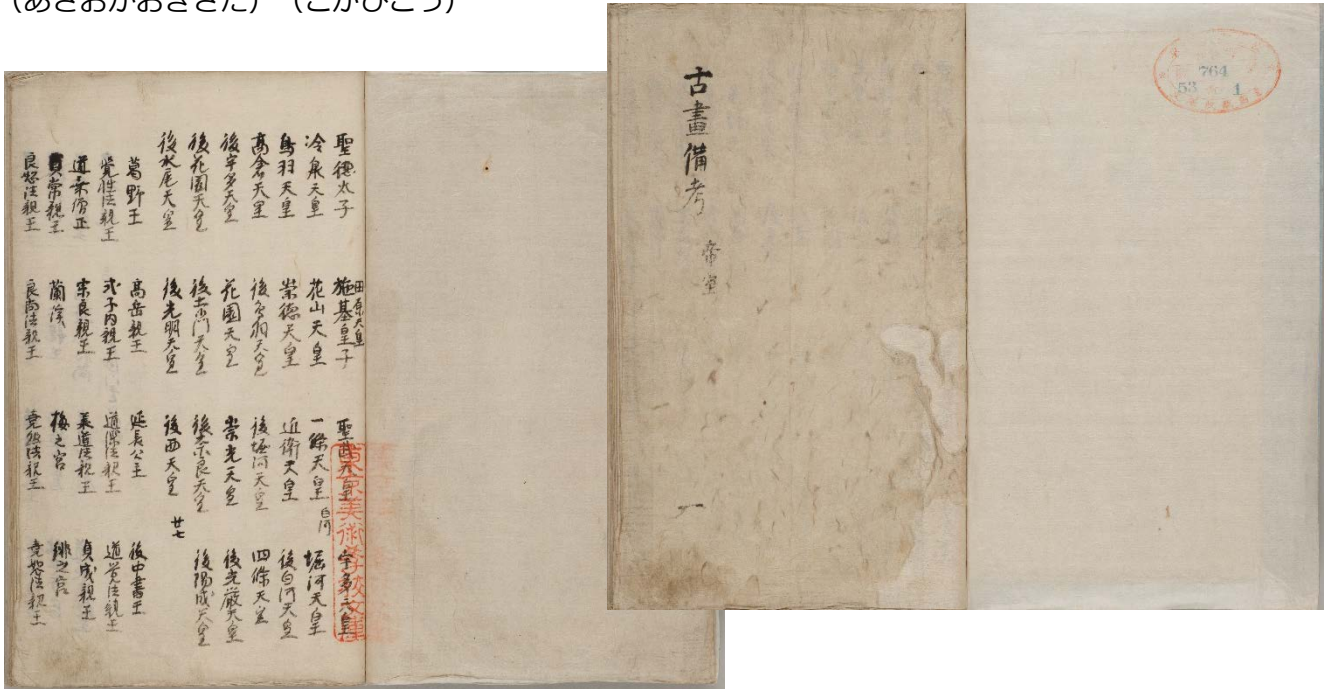 （あさおかおきさだ）（こがびこう）
古畫備考
帝室
一
764
53 1
聖徳太子 田原天皇 施基皇子 聖武天皇 宇多天皇
冷泉天皇 花山天皇 一條天皇 白河 堀河天皇
鳥羽天皇 崇徳天皇 近衛天皇 後白河天皇
髙倉天皇 後鳥羽天皇 後堀河天皇 四條天皇
後宇多天皇 花園天皇 崇光天皇 後光厳天皇
後花園天皇 後土御門天皇 後奈良天皇 後陽成天皇
後水尾天皇 後光明天皇 後西天皇 廿七
葛野王 髙岳親王 延長公主 後中書王
覚性法親王 式子内親王 道深法親王 道覚法親王
道乗僧正 宗良親王 道法親王 貞成親王
貞常親王 蘭渓 梅之宮 緋之宮
良恕法親王 良尚法親王 尭然法親王 尭恕法親王
東京美術学校文庫